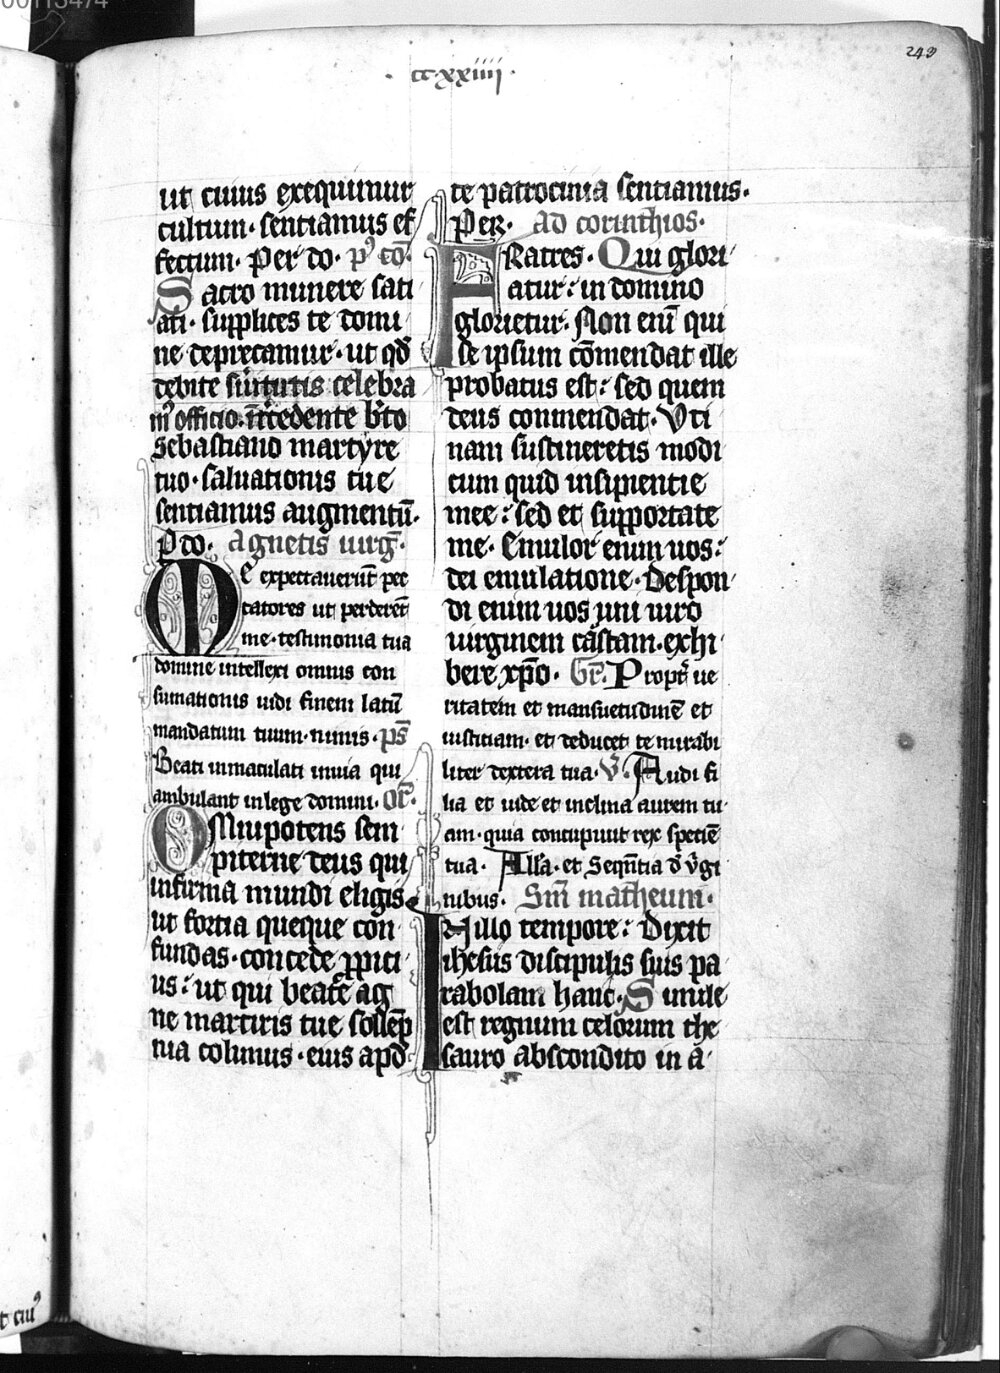 00113474
243
· cc·xxiiii ·
ut cuius exequimur
cultum · sentiamus ef
fectum · Per do · p᾽ cō ·
Sacro munere sati
ati · supplices te domi
ne deprecamur · ut qd̄
debite seruitutis celebra
mꝰ officio · īt̄cedente bt̄o
sebastiano martyre
tuo · saluationis tue
sentiamus augmentū ·
P do · Agnetis uirḡ ·
Me expectauerūt pec
catores ut perderēt
me · testimonia tua
domine intellexi omnis con
sumationis uidi finem latū
mandatum tuum · nimis · p̄s
Beati inmaculati inuia qui
ambulant in lege domini · Or̄ ·
Omnipotens sem
piterne deus qui
infirma mundi eligis
ut fortia queque con
fundas · concede ꝓpiti
us : ut qui beate ag
ne martiris tue sollēp
nia colimus · eius apd̄
te patrocinia sentiamus ·
Per · ad corinthios ·
FRatres · Qui glori
atur : in domino
glorietur · Non enī qui
se ipsum cōmendat ille
probatus est : sed quem
deus commendat · Vti
nam sustineretis modi
cum quid insipientie
mee : sed et supportate
me · Emulor enim uos :
dei emulatione · Despon
di enim uos uni uiro
uirginem castam · exhi
bere xp̄o · Gr̄ · Propt̄ ue
ritatem et mansuetudinē et
iusticiam · et deducet te mirabi
liter dextera tua · V̄ · Audi fi
lia et uide et inclina aurem tu
am · quia concupiuit rex speciē
tua · All̄a · et Seqn̄tia d̄ v̄gi
nibus · Sm̄ matheum ·
In illo tempore : Dixit
ihesus discipulis suis pa
rabolam hanc · Simile
est regnum celorum the
sauro abscondito in a ·